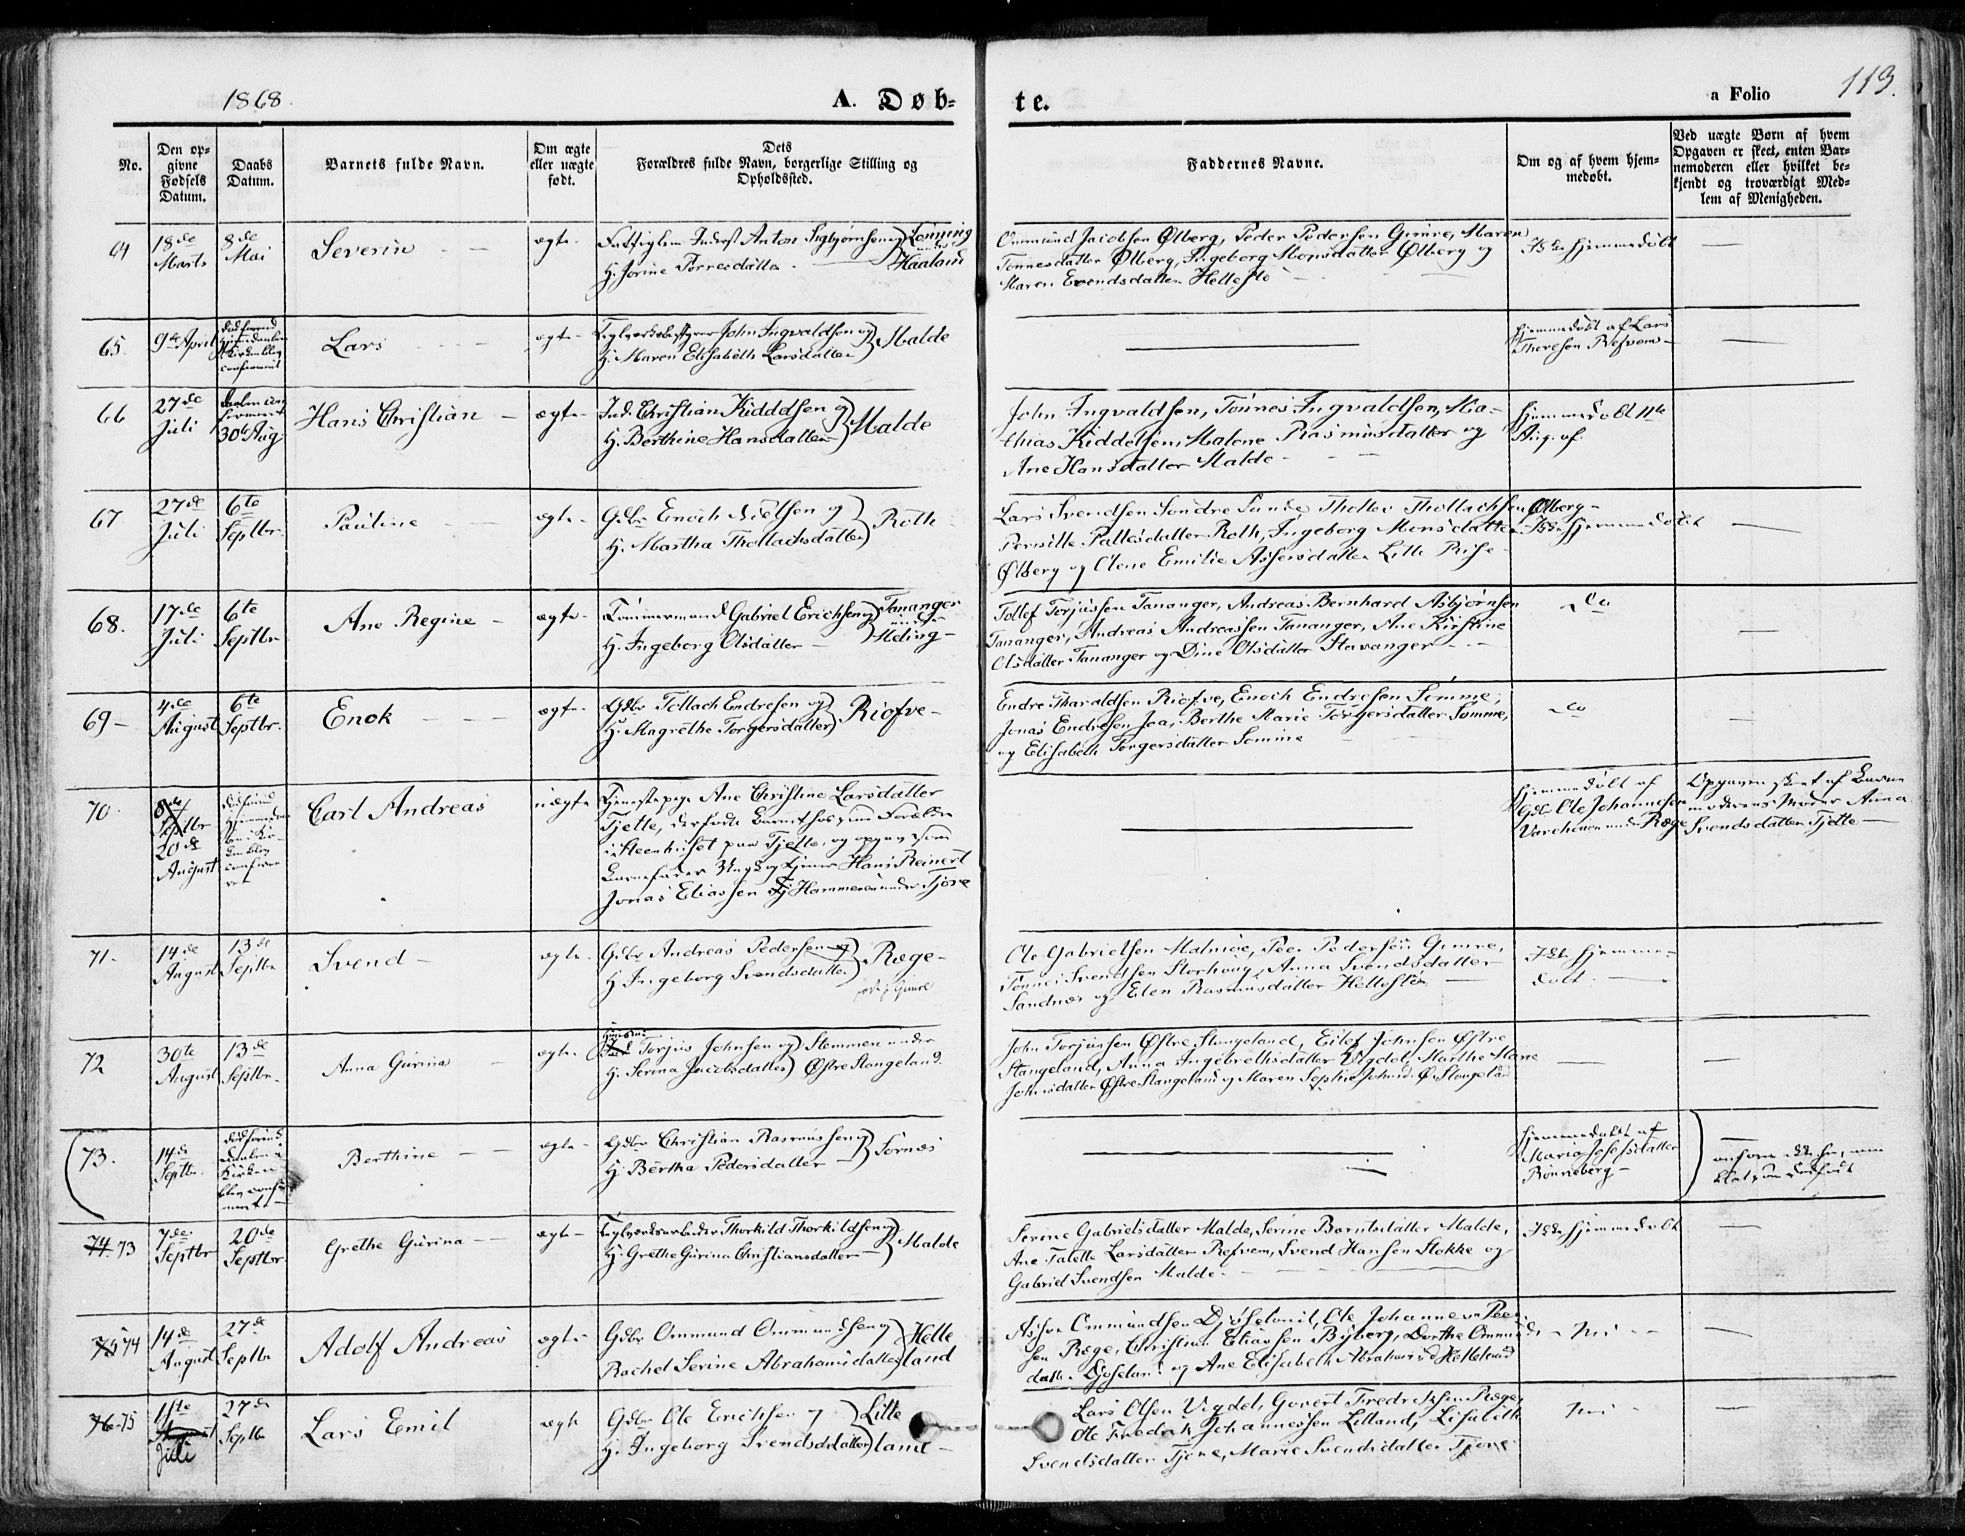 1868.
A. Døb-
te.
a Folio
113.
No.
Den op-
givne
Fødsels
Datum.
Daabs
Datum.
Barnets fulde Navn.
Om ægte
eller uægte
født.
Dets
Forældres fulde Navn, borgerlige Stilling og
Opholdssted.
Faddernes Navne.
Om og af hvem hjem-
medøbt.
Ved uægte Børn af hvem
Opgaven er skeet, enten Bar-
nemoderen eller hvilket be-
kjendt og troværdigt Med-
lem af Menigheden.
64
18de
Marts
8de
Mai
Severin
ægte
Anton Sigbjørnsen og
H. Jorine Torresdatter
Lønning
under
Haaland
Ommund Jacobsen Ølberg, Peder Pedersen Gimre, Maren
Tønnesdatter Ølberg, Ingeborg Monsdatter Ølberg og
Maren Evendsdatter Hellestø
Ikke hjemmedøbt
65.
9de April
Lars
ægte
John Ingvaldsen og
H. Maren Elisabeth Larsdatter
Malde
hjemmedøbt af Lars
Thoresen Refvem
66
27de
Juli
30te Aug.
Hans Christian
ægte
Ind. Christian Kiddelsen og
H. Berthine Hansdatter
Malde
John Ingvaldsen, Tønnes Ingvaldsen, Ma-
thias Kiddelsen, Malene Rasmusdatter og
Ane Hansdatter Malde
hjemmedøbt 11te
Aug. af
67
27de
Juli
6te
Septbr.
Pauline
ægte
Gdbr Enoch Nielsen og
H. Martha Thollachsdatter
Roth
Lars Svendsen Søndre Sunde, Thollac Thollachsen Ølberg
Pernille Pallesdatter Roth, Ingeborg Monsdatter
Ølberg og Olene Emilie Assersdatter Lille Risse
Ikke hjemmedøbt
68.
17de
Juli
6te
Septbr
Ane Regine
ægte
Tømmermand Gabriel Erichsen og
H. Ingeborg Olsdatter
Tananger
under
Meling
Tollef Torjussen Tananger, Andreas Bernhard Asbjørnsen
Tananger, Andreas Andreassen Tananger, Ane Kirstine
Olsdatter Tananger og Dine Olsdatter Stavanger
do
69
4de
August
6te
Septbr.
Enok
ægte
Gdbr Tollach Endresen og
H. Magrethe Torgersdatter
Riofve
Endre Tharaldsen Riofve, Enoch Endresen Sømme,
Jonas Endresen Joa, Berthe Marie Torgersdatter Sømme,
og Elisabeth Torgersdatter Sømme
do
70
Septbr
20de
August
Carl Andreas
uægte
Tjenestepige Ane Christine Larsdatter
Tjelte,
i Steenhuset paa Tjelte, og opgav som
Barnefader Ungk og tjener Hans Reinert
Jonas Eliassen Hammeren under Tjøre
hjemmedøbt af
Gdbr Ole Johannesen
Varehouen under Ræge
Opgaven skeet af Barne
moderens Moder Anna
Svendsdatter Tjelte
71.
14de
August
13de
Septbr
Svend
ægte
Gdbr Andreas Pedersen og
H. Ingeborg Svendsdatter
Ræge
Ole Gabrielsen Malmøe, Peer Pedersen Gimre,
Tønnes Svendsen Storhoug, Anna Svendsdatter
Sandnes og Elen Rasmusdatter Hellestø
Ikke hjemme-
døbt
72
30te
August
13de
Septbr.
Anna Gurina
ægte
Torjus Johnsen og
H. Serina Jacobsdatter
Stemmen under
Østre Stangeland.
John Torjussen Østre Stangeland, Eilef Johnsen Østre
Stangeland, Anna Ingebrethsdatter Vigdel, Marthe Marie
Johnsdatter Østre Stangeland og Maren Sophie Johnsd. Ø. Stangeland
73.
14de
Septbr.
Berthine
ægte
Gdbr Christian Rasmussen og
H. Bertha Pedersdatter
Sørnes
hjemmedøbt af
Maria Josefsdatter
Rønneberg
anføres ikke her, men
blot som dødfødt
74. 73
7de
Septbr
20de
Septbr.
Grethe Gurina
ægte
Teglværksarbeider Thorkild Thorkildsen og
H. Grethe Gurina Christiansdatter
Malde
Serine Gabrielsdatter Malde, Serine Berntsdatter Malde,
Ane Talette Larsdatter Refvem, Svend Hansen Stokke og
Gabriel Svendsen Malde
Ikke hjemmedøbt
75 74
14de
August
27de
Septbr
Adolf Andreas
ægte
Gdbr Ommund Ommundsen og
Rachel Serine Abrahamsdatter
Helle
land
Asser Ommundsen Djøseland, Ole Johannesen Peer-
sen Ræge, Christian Eliassen Byberg, Dorthe Ommunds-
datter Djøseland og Ane Elisabeth Abrahamsd. Helleland
Nei
76 75
11te
August
Juli
27de
Septbr
Lars Emil
ægte
Gdbr Ole Erichsen og
H. Ingeborg Svendsdatter
Litle
land
Lars Olsen Vigdel, Govert Fredriksen Ræge,
Ole Fredrik Johannessen Litland, Lisabeth
Svendsdatter Tjøre, Marie Svendsdatter Tjøre
Nei